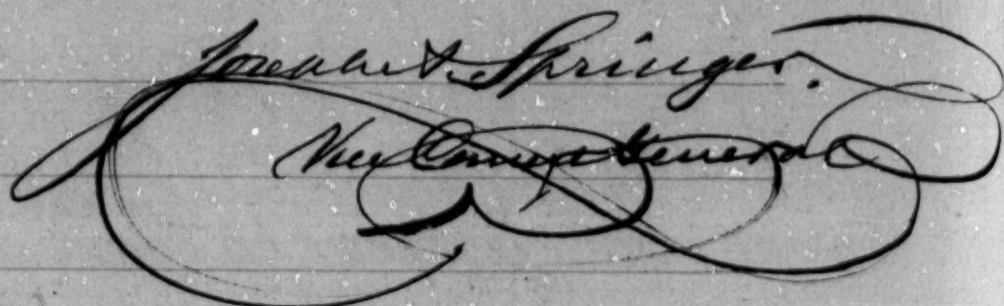 Joseph A. Springer.
Vice Consul General